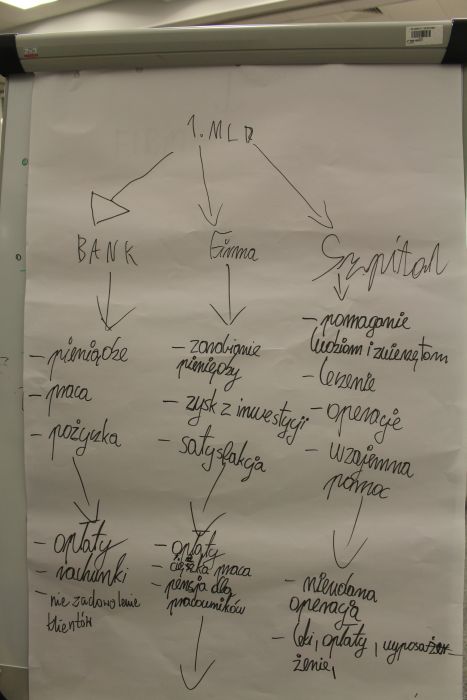 1. MLD
BANK
Firma
Szpital
- pieniądze
- praca
- pożyczka
- zarabianie
pieniędzy
- zysk z inwestycji
- satysfakcja
- pomaganie
ludziom i zwierzętom
- leczenie
- operacje
- wzajemna
pomoc
- opłaty
- rachunki
- nie zadowolenie
klientów
- opłaty
- ciężka praca
- pensja dla
pracowników
- nieudana
operacja
- leki, opłaty, wyposa
żenie,